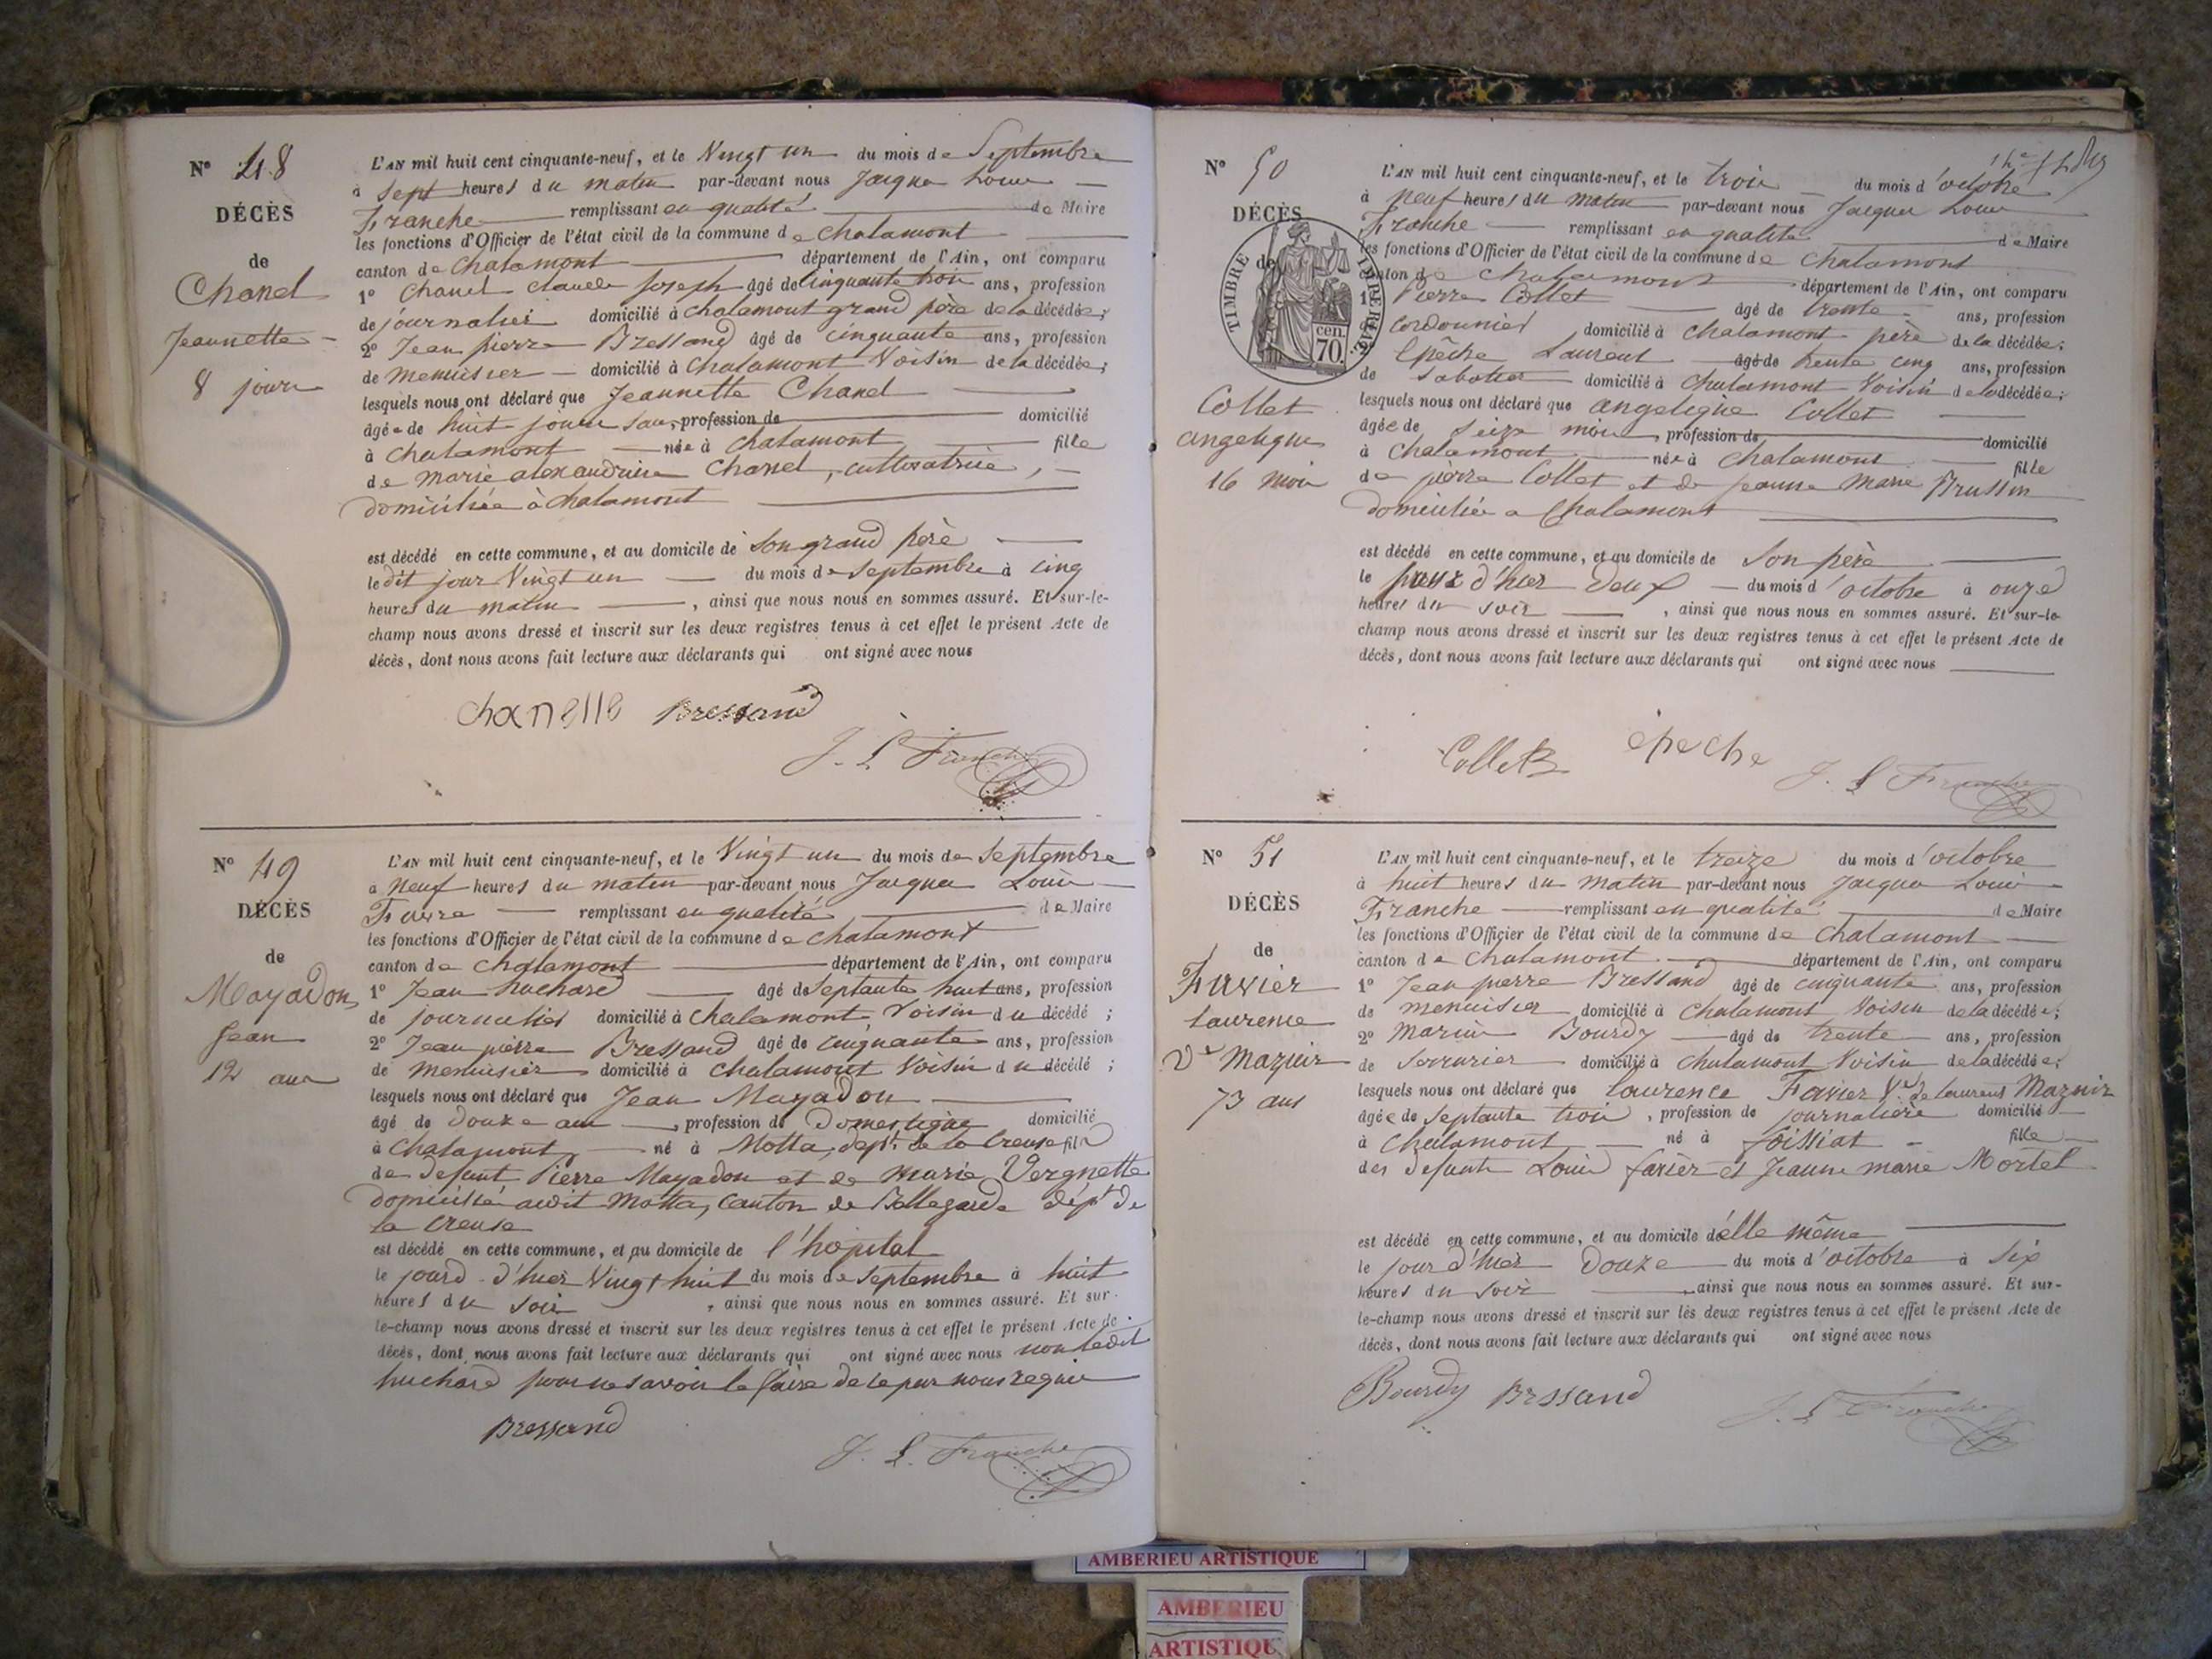 N° 48
DÉCÈS
de
Chanel
Jeannette
8 jours
L'AN mil huit cent cinquante-neuf, et le Vingt un du mois de Septembre
à sept heures du matin par-devant nous Jacques Louis
Franche remplissant en qualité de Maire
les fonctions d'Officier de l'état civil de la commune de Chalamont
canton de Chalamont département de l'Ain, ont comparu
1° Chanel Claude Joseph âgé de cinquante trois ans, profession
de journalier domicilié à Chalamont grand père de la décédée;
2° Jean pierre Bressand âgé de cinquante ans, profession
de menuisier domicilié à Chalamont Voisin de la décédée;
lesquels nous ont déclaré que Jeannette Chanel
âgée de huit jours sans profession de domicilié
à Chalamont née à Chalamont fille
de marie alexandrine Chanel, cultivatrice,
domiciliée à Chalamont
est décédé en cette commune, et au domicile de son grand père
le dit jour Vingt un du mois de Septembre à cinq
heures du matin, ainsi que nous nous en sommes assuré. Et sur-le-
champ nous avons dressé et inscrit sur les deux registres tenus à cet effet le présent Acte de
décès, dont nous avons fait lecture aux déclarants qui ont signé avec nous
chanelle Bressand
J. L. Franche
N° 49
DÉCÈS
de
Mayadon
Jean
12 ans
L'AN mil huit cent cinquante-neuf, et le Vingt un du mois de Septembre
à neuf heures du matin par-devant nous Jacques Louis
remplissant en qualité de Maire
les fonctions d'Officier de l'état civil de la commune de Chalamont
canton de Chalamont département de l'Ain, ont comparu
1° Jean huchard âgé de Septante huit ans, profession
de journalier domicilié à Chalamont, Voisin du décédé ;
2° Jean pierre Bressand âgé de cinquante ans, profession
de menuisier domicilié à Chalamont Voisin du décédé ;
lesquels nous ont déclaré que Jean Mayadon
âgé de douze ans, profession de Domestique domicilié
à Chalamont né à Motta, dept de la Creuse fils
de defunt Pierre Mayadon et de marie Vergnette
domiciliée audit Motta, Canton de Bellegarde dépt de
la Creuse
est décédé en cette commune, et au domicile de l'hôpital
le jour d'hier Vingt huit du mois de Septembre à huit
heures du soir, ainsi que nous nous en sommes assuré. Et sur-
le-champ nous avons dressé et inscrit sur les deux registres tenus à cet effet le présent Acte de
décès, dont nous avons fait lecture aux déclarants qui ont signé avec nous non ledit
huchard pour ne savoir le faire de ce par nous requis
Bressand
J. L. Franche
N° 50
DÉCÈS
de
TIMBRE IMPÉRIAL
70 cen.
Collet
angelique
16 mois
L'AN mil huit cent cinquante-neuf, et le trois du mois d'octobre
à neuf heures du matin par-devant nous Jacques Louis
Franche remplissant en qualité de Maire
les fonctions d'Officier de l'état civil de la commune de Chalamont
canton de Chalamont département de l'Ain, ont comparu
1° Pierre Collet âgé de trente ans, profession
de cordonnier domicilié à Chalamont père de la décédée;
Epêche Laurent âgé de trente cinq ans, profession
de Sabotier domicilié à Chalamont Voisin de la décédée;
lesquels nous ont déclaré que angelique Collet
âgée de seize mois, profession de domicilié
à Chalamont née à Chalamont fille
de pierre Collet et de jeanne Marie Brussin
domiciliée a Chalamont
est décédé en cette commune, et au domicile de Son père
le jour d'hier deux du mois d'octobre à onze
heures du soir, ainsi que nous nous en sommes assuré. Et sur-le-
champ nous avons dressé et inscrit sur les deux registres tenus à cet effet le présent Acte de
décès, dont nous avons fait lecture aux déclarants qui ont signé avec nous
Collet épeche J. L. Franche
N° 51
DÉCÈS
de
Favier
laurence
Ve Maznir
73 ans
L'AN mil huit cent cinquante-neuf, et le treize du mois d'octobre
à huit heures du matin par-devant nous Jacques Louis
Franche remplissant en qualité de Maire
les fonctions d'Officier de l'état civil de la commune de Chalamont
canton de Chalamont département de l'Ain, ont comparu
1° Jean pierre Bressand âgé de cinquante ans, profession
de menuisier domicilié à Chalamont Voisin de la décédée;
2° Marin Bourdy âgé de trente ans, profession
de Serrurier domicilié à Chalamont Voisin de la décédée;
lesquels nous ont déclaré que laurence Favier Ve de laurent Maznir
âgée de Septante trois, profession de journalière domicilié
à Chalamont né à foissiat fille
des defunts Louis favier et Jeanne marie Mortel
est décédé en cette commune, et au domicile d'elle même
le jour d'hier Douze du mois d'octobre à Six
heures du soir ainsi que nous nous en sommes assuré. Et sur-
le-champ nous avons dressé et inscrit sur les deux registres tenus à cet effet le présent Acte de
décès, dont nous avons fait lecture aux déclarants qui ont signé avec nous
Bourdy Bressand J. L. Franche
AMBERIEU ARTISTIQUE
AMBERIEU
ARTISTIQUE